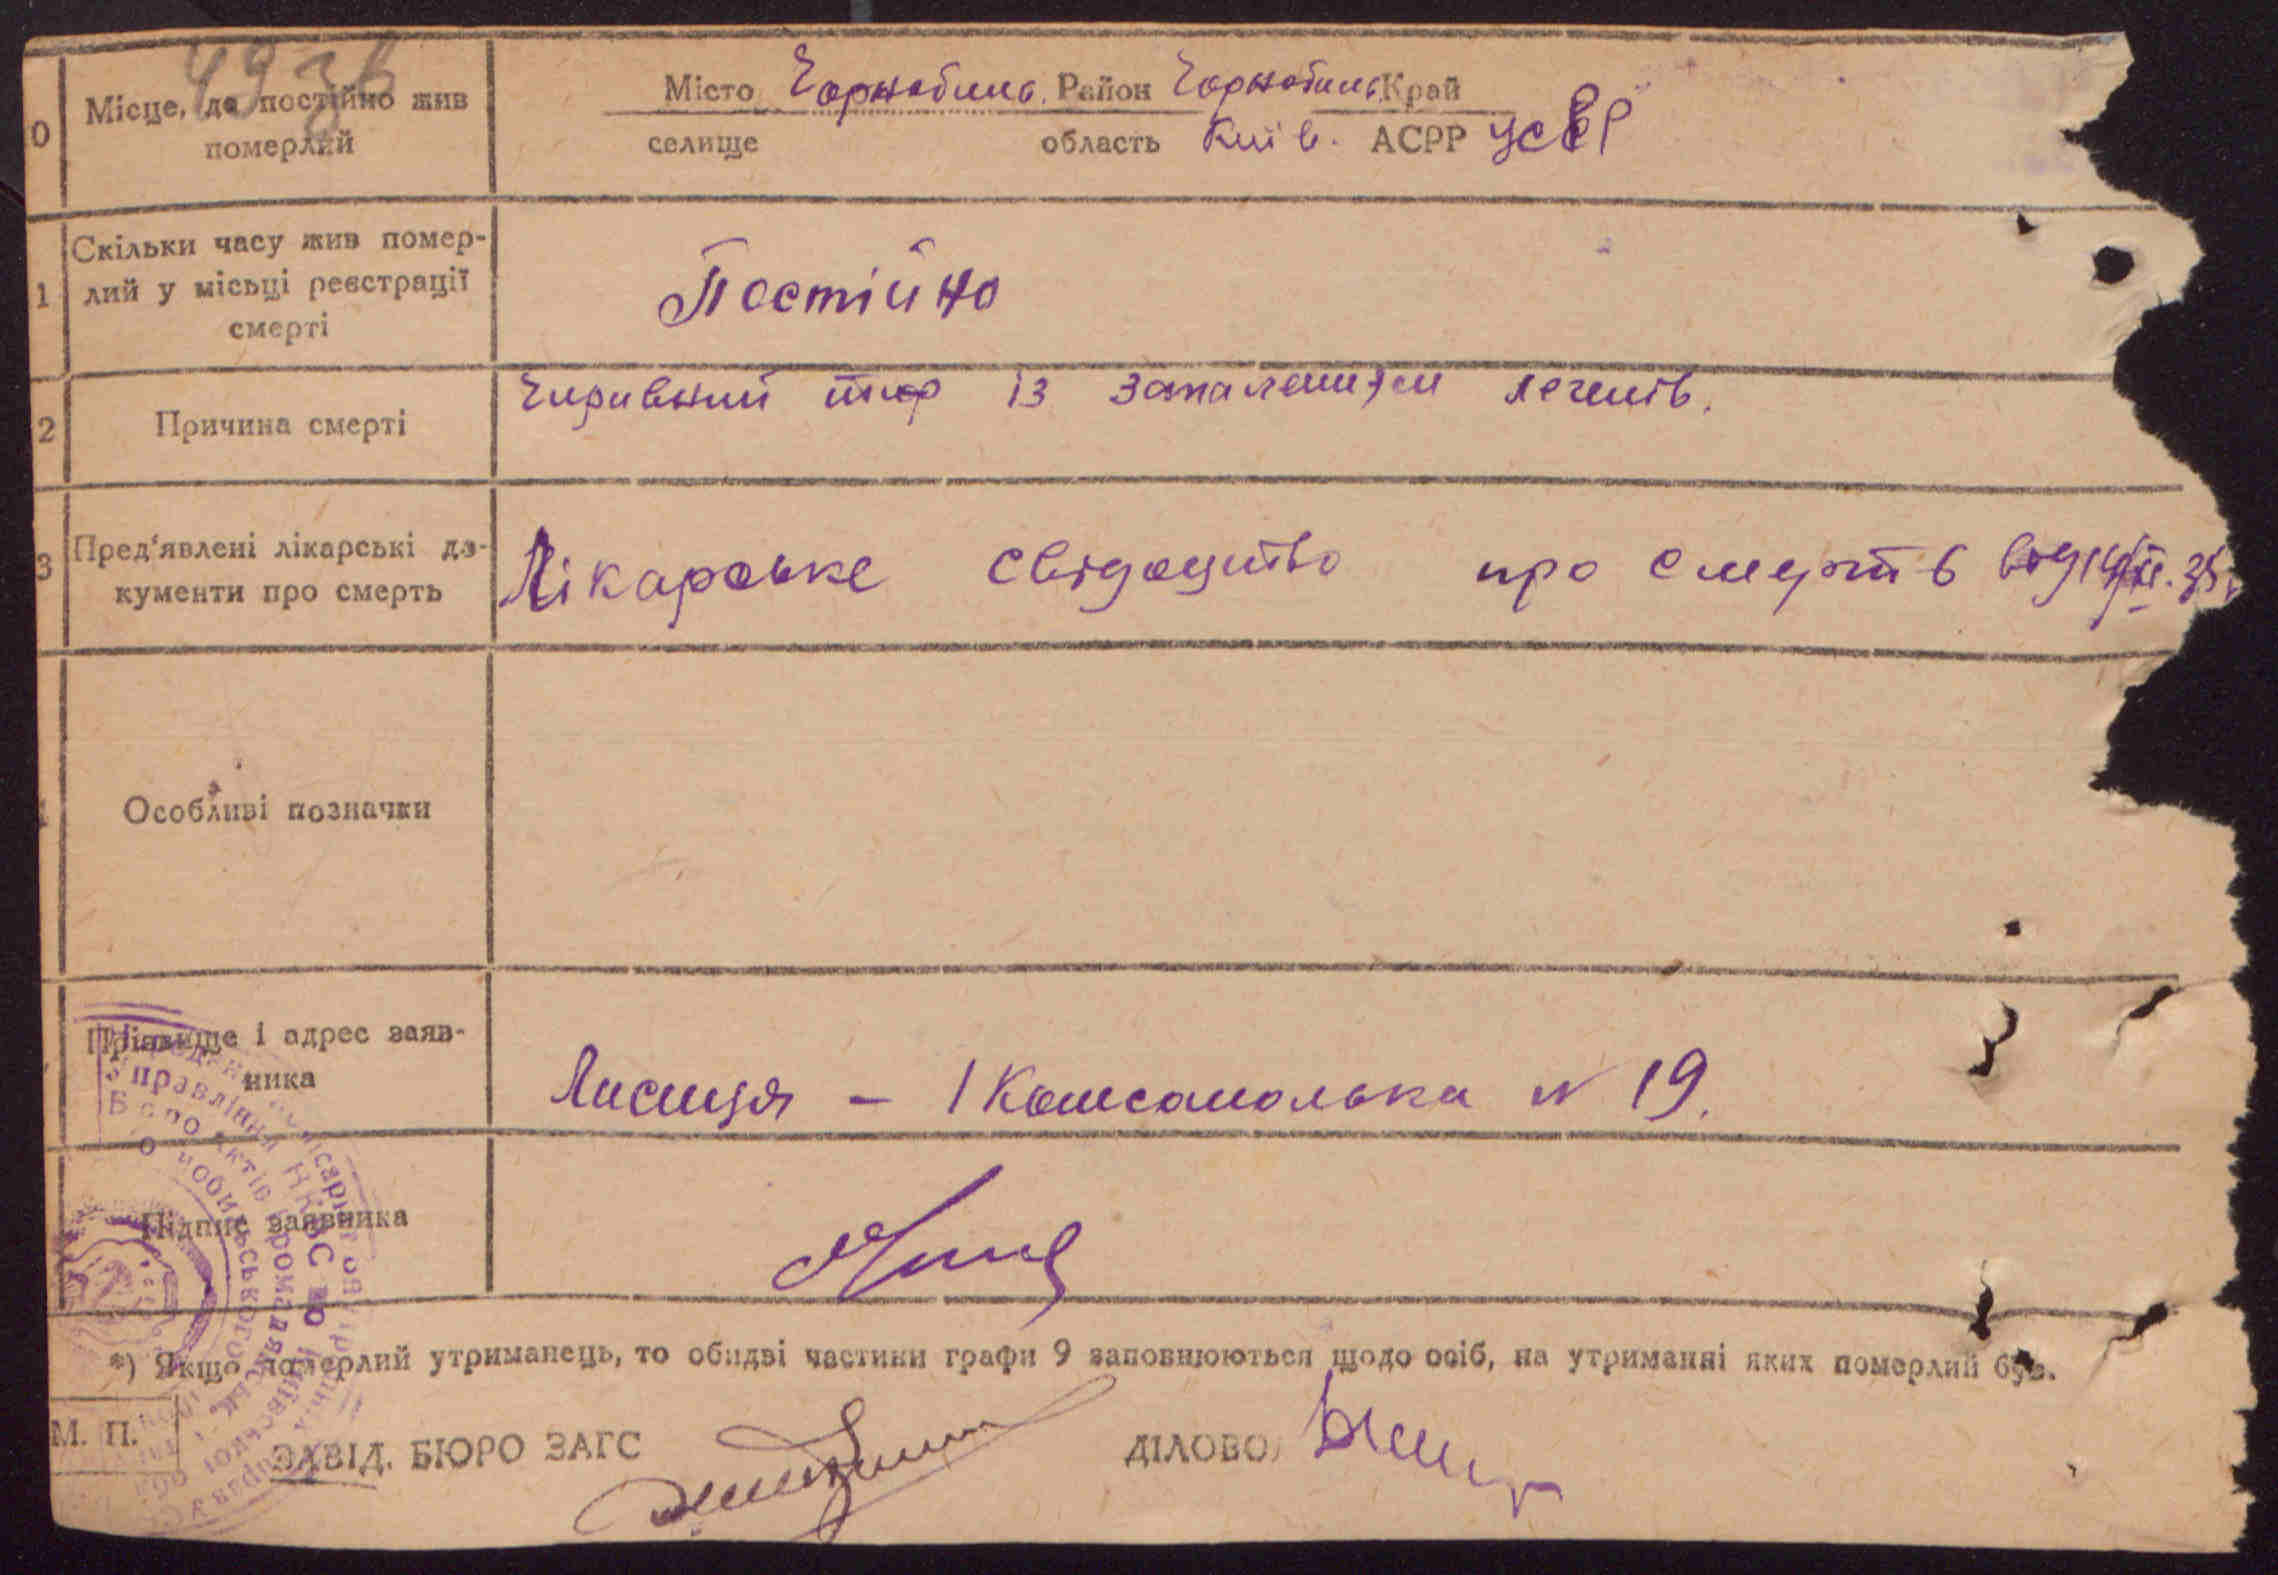 49 зв
0 Місце, де постійно жив
померлий
Місто Чорнобиль. Район Чорнобиль Край
селище область Київ. АСРР УСРР
1 Скільки часу жив помер-
лий у місьці реєстрації
смерті
Постійно
2 Причина смерті
Чиривний тиф із запаленням легенів.
3 Пред'явлені лікарські до-
кументи про смерть
Лікарське свідоцтво про смерть від
Особливі позначки
Прізвище і адрес заяв-
ника
Лисиця – 1 Комсомолька № 19.
Підпис заявника
*) Якщо померлий утриманець, то обидві частини графи 9 заповнюються щодо осіб, на утриманні яких померлий був.
М. П.
ЗАВІД. БЮРО ЗАГС
ДІЛОВОД